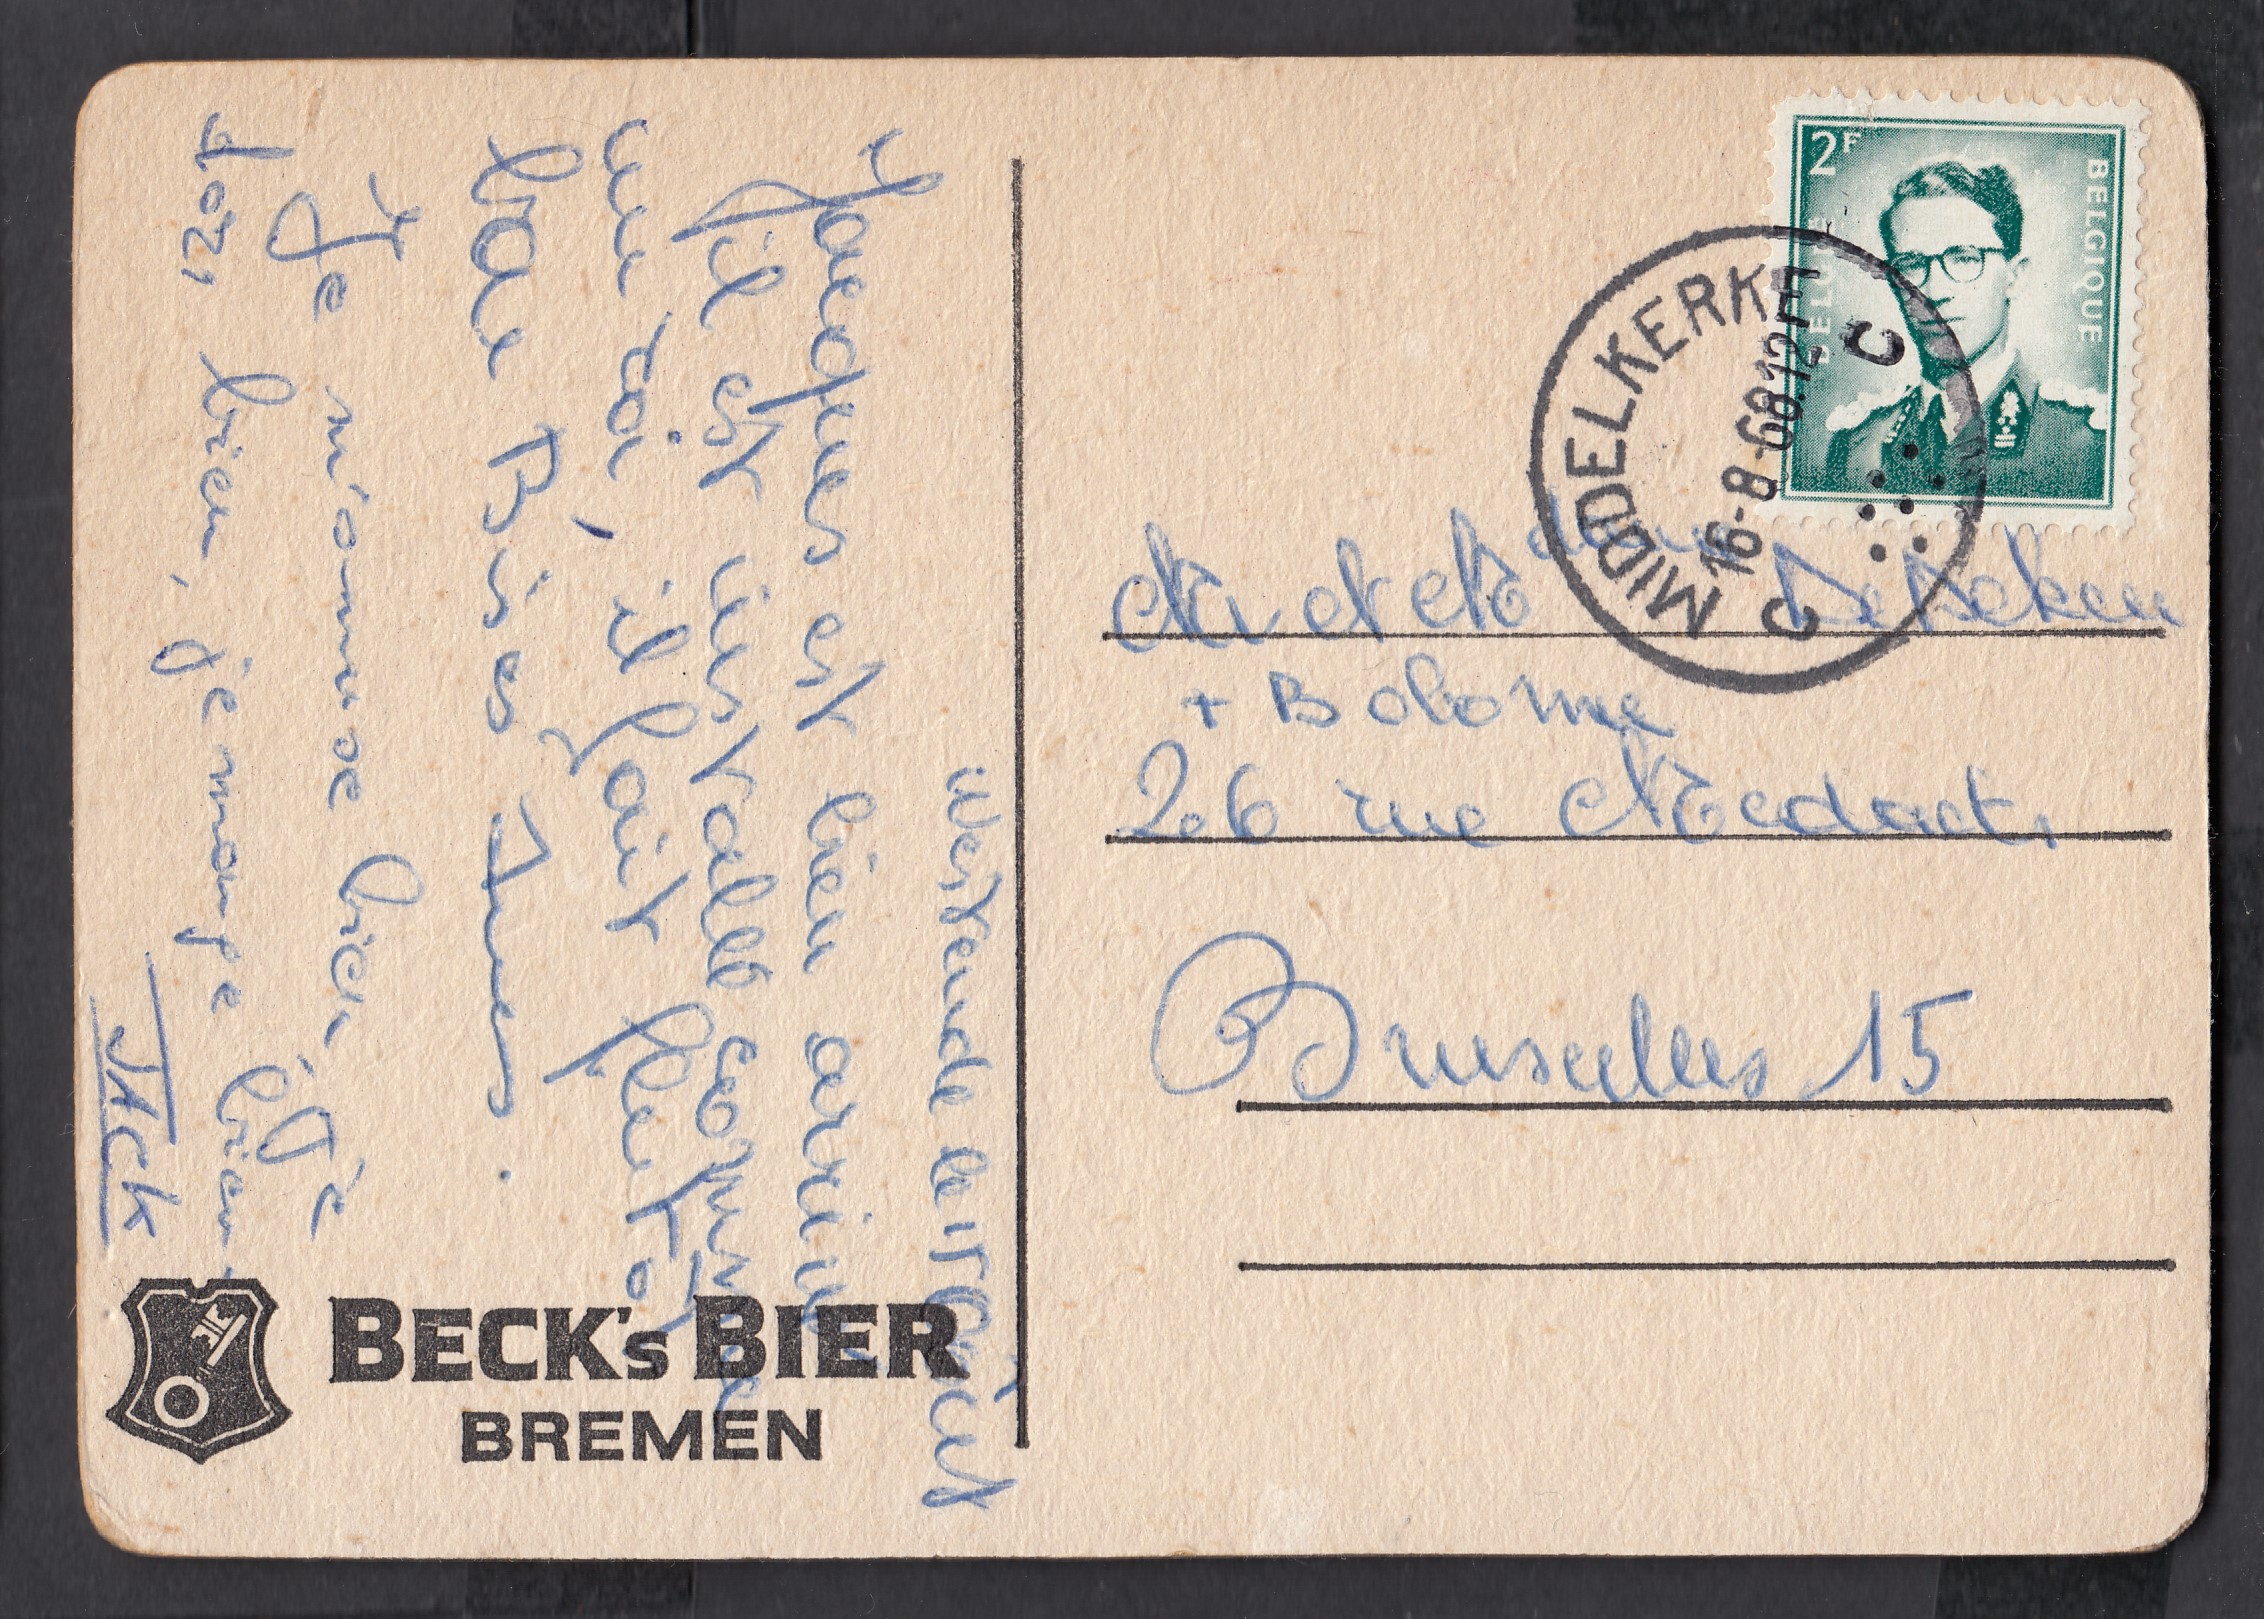 Westende le 15 Août
Jacques est bien arrivé
Il est installé comme
un roi, il fait plutôt
beau Bises Yves.
Je m'amuse bien, je
dors bien, je mange bien
JACK
BECK's BIER
BREMEN
2F
BELGIQUE
BELGIE
MIDDELKERKE
16-8-68.12
C
C
Mr et Mme De Beken
+ Bobonne
26 rue Medaets
Bruxelles 15